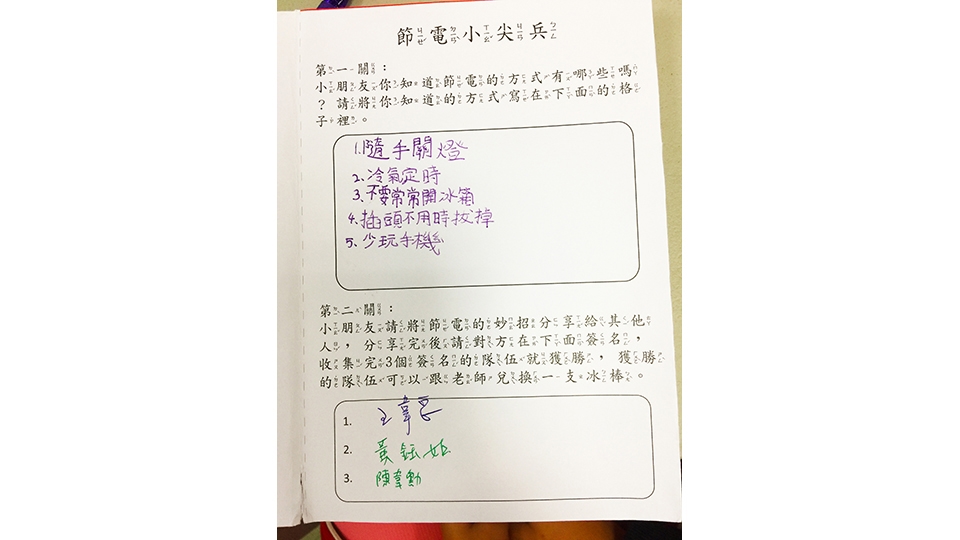 節電小尖兵
第一關：
小朋友你知道節電的方式有哪些嗎
？請將你知道的方式寫在下面的格
子裡。
1.隨手關燈
2、冷氣定時
3、不要常常開冰箱
4.插頭不用時拔掉
5、少玩手機
第二關：
小朋友請將節電的妙招分享給其他
人，分享完後請對方在下面簽名，
收集完3個簽名的隊伍就獲勝，獲勝
的隊伍可以跟老師兌換一支冰棒。
1. 王韋
2. 黃鈺
3. 陳韋勳